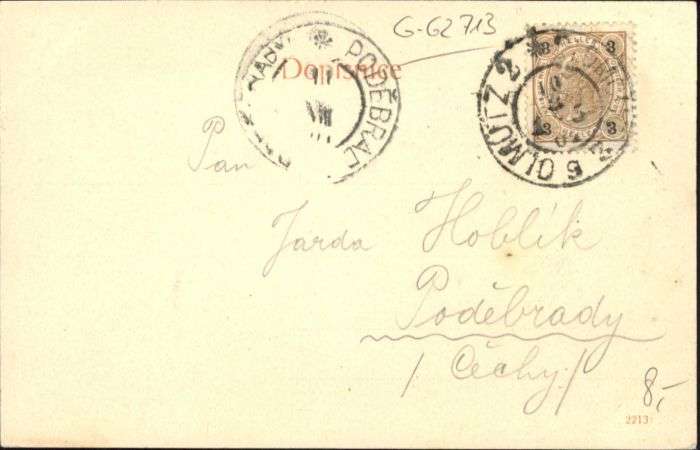 G-62713
Dopisnice
PODĚBRAD
3 3
3 3
OLMÜTZ 2
Pan
Jarda Hoblík
Poděbrady
/Čechy/
8,-
2213